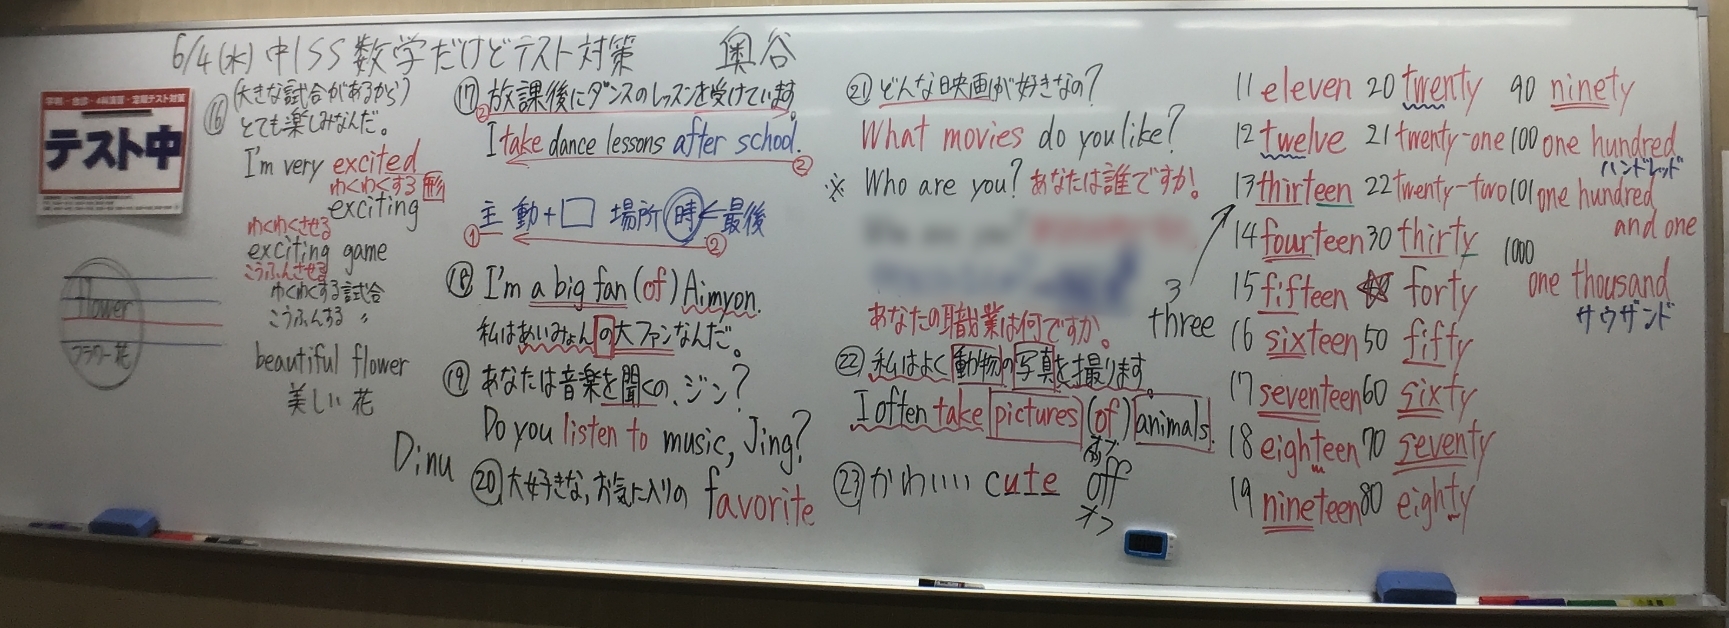 6/4(水) 中1SS 数学だけどテスト対策 奥谷
テスト中
flower
フラワー 花
⑯ (大きな試合があるから)
とても楽しみなんだ。
I'm very excited
わくわくする 形
exciting
わくわくさせる
exciting game
こうふんさせる
わくわくする試合
こうふんする 〃
beautiful flower
美しい花
Dinu
⑰ 放課後にダンスのレッスンを受けています。
②
I take dance lessons after school.
②
主 動+□ 場所 時←最後
① ②
⑱ I'm a big fan (of) Aimyon.
私はあいみょんの大ファンなんだ。
⑲ あなたは音楽を聞くの、ジン?
Do you listen to music, Jing?
⑳ 大好きな, お気に入りの favorite
㉑ どんな映画が好きなの?
What movies do you like?
※ Who are you? あなたは誰ですか!
あなたの職業は何ですか。
㉒ 私はよく動物の写真を撮ります。
I often take pictures (of) animals.
オブ
㉓ かわいい cute off
オフ
3
three
11 eleven 20 twenty 90 ninety
12 twelve 21 twenty-one 100 one hundred
ハンドレッド
13 thirteen 22 twenty-two 101 one hundred
and one
14 fourteen 30 thirty 1000
one thousand
サウザンド
15 fifteen 40 forty
16 sixteen 50 fifty
17 seventeen 60 sixty
18 eighteen 70 seventy
19 nineteen 80 eighty